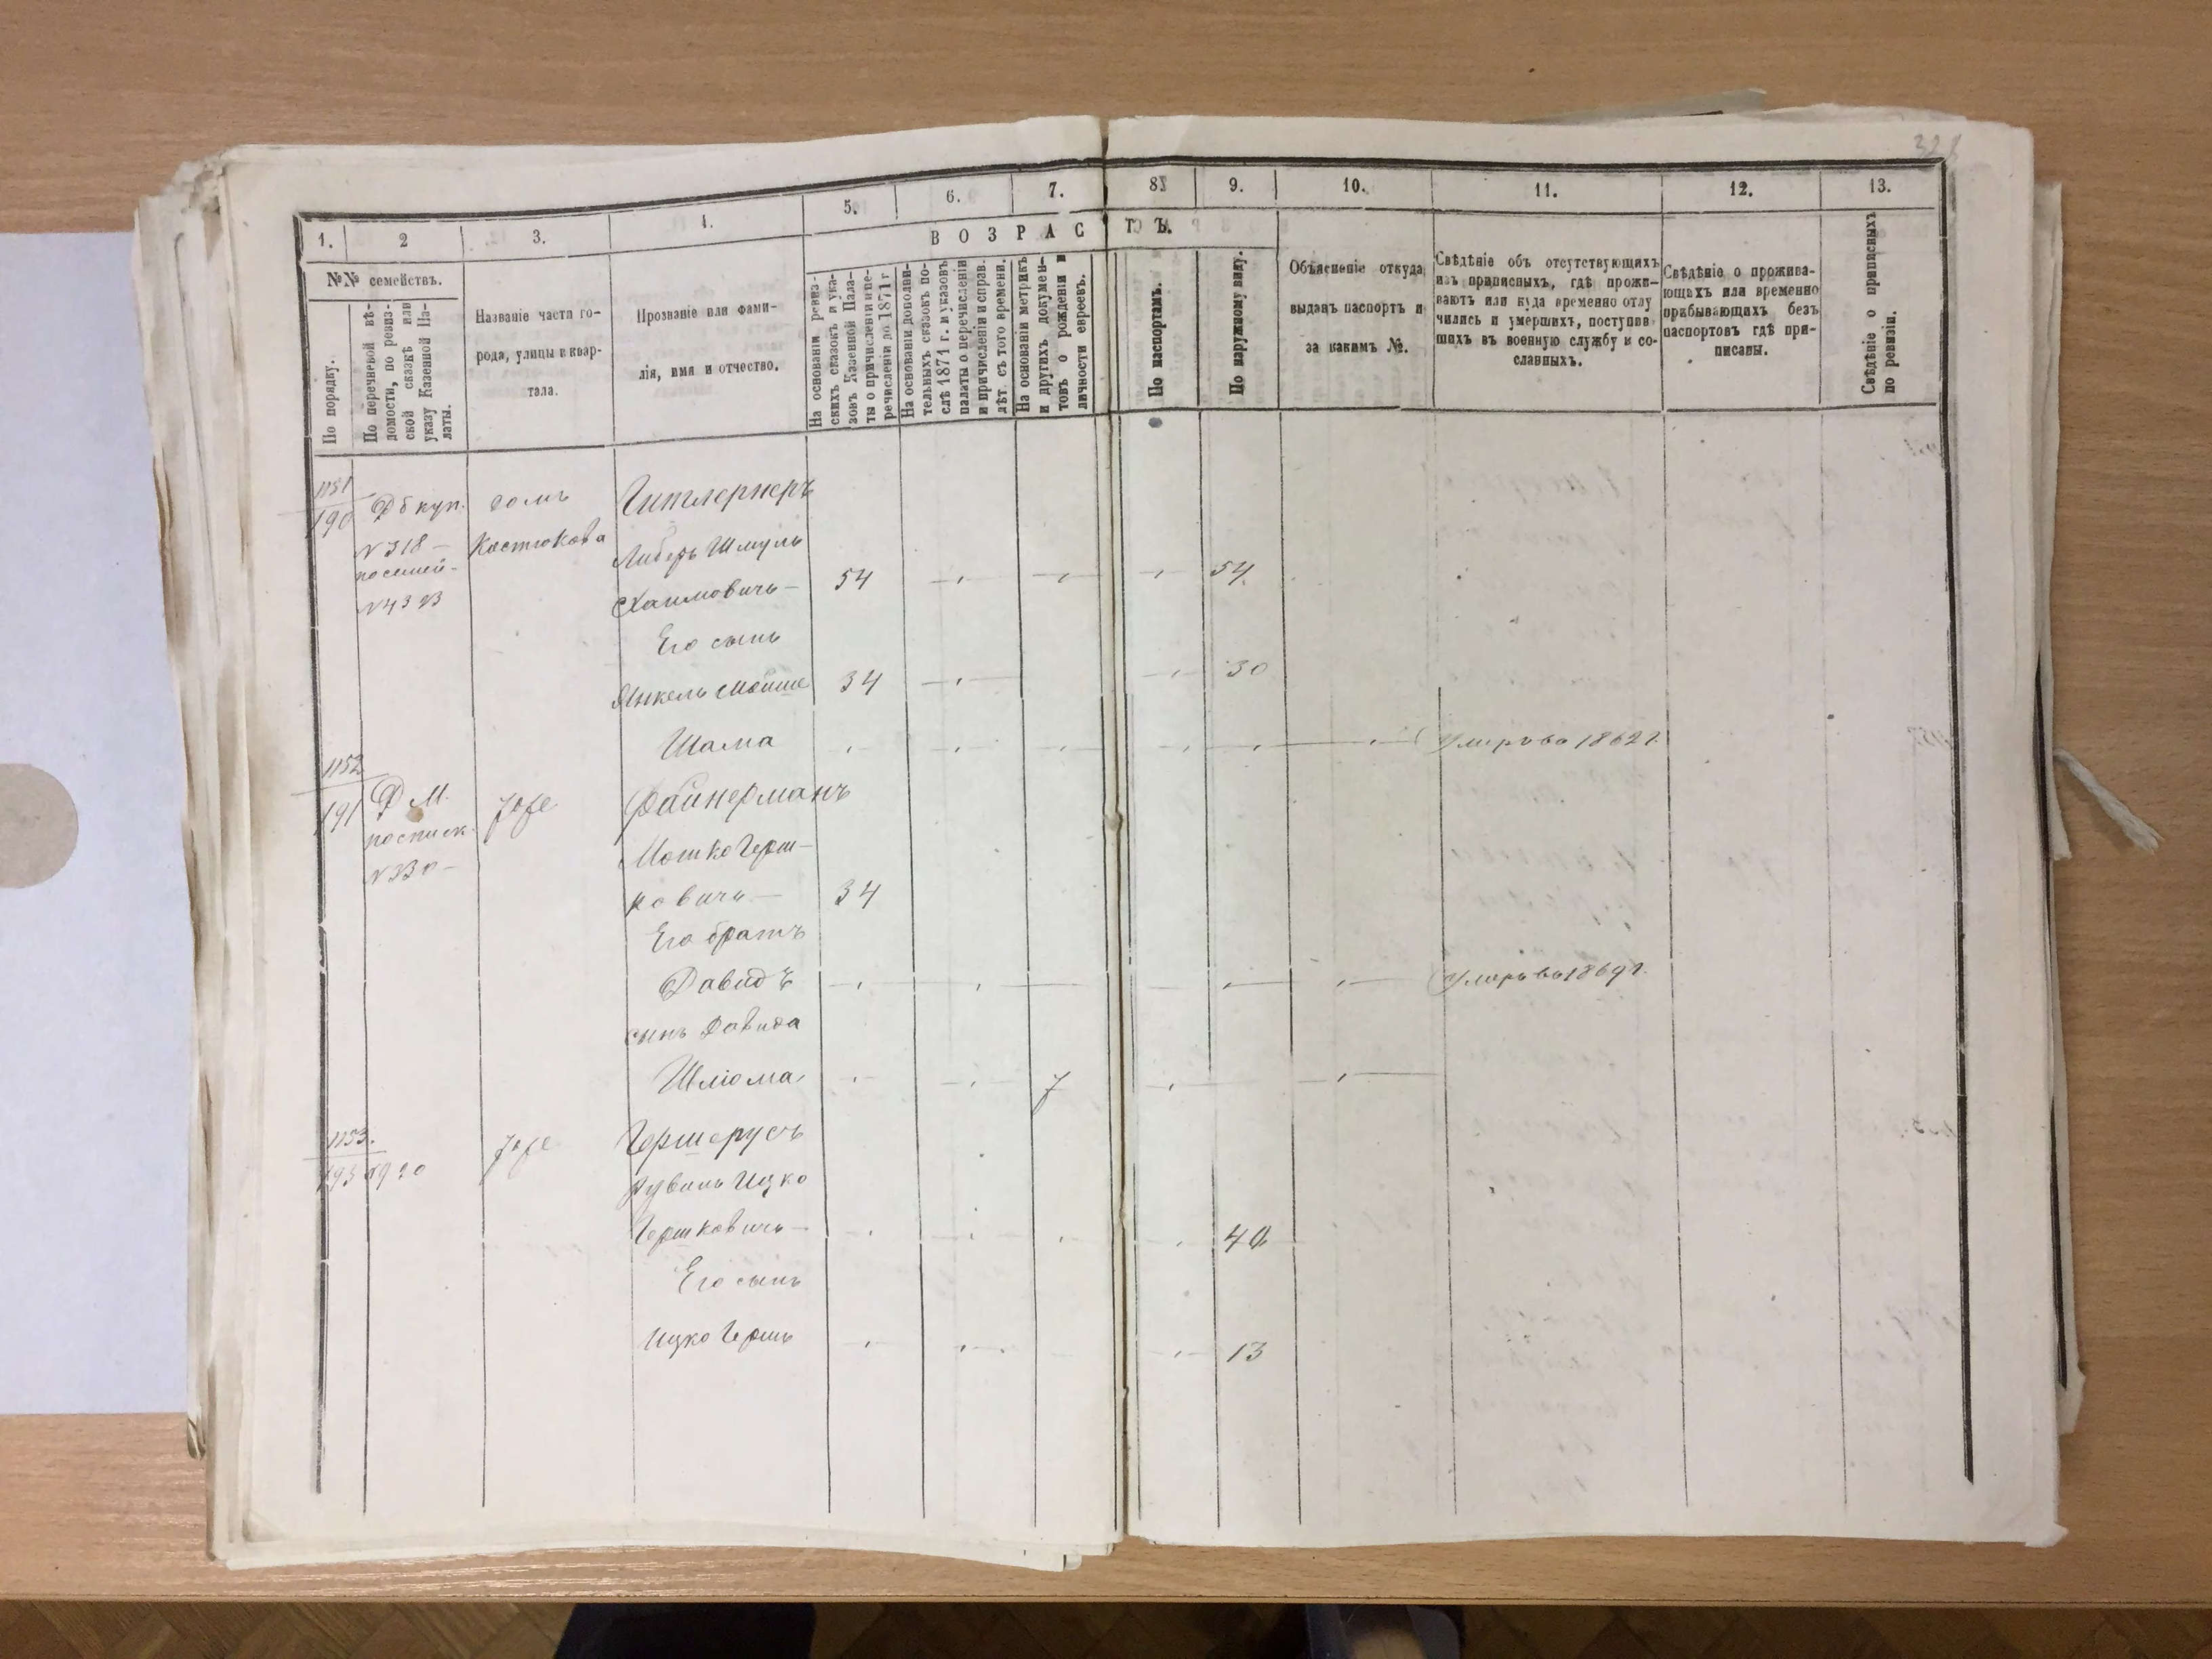 328
1.
2
3.
4.
5.
6.
7.
8
9.
10.
11.
12.
13.
В О З Р А С Т Ъ.
№№ семействъ.
По порядку.
По перечневой вѣ-
домости, по ревиз-
ской сказкѣ или
указу Казенной Па-
латы.
Названіе части го-
рода, улицы и квар-
тала.
Прозваніе или фами-
лія, имя и отчество.
На основаніи ревиз-
скихъ сказокъ и ука-
зовъ Казенной Пала-
ты о причисленіи и пе-
речисленіи до 1871 г
На основаніи дополни-
тельныхъ сказокъ по-
слѣ 1871 г. и указовъ
палаты о перечисленіи
и причисленіи и справ.
лѣт. съ того времени.
На основаніи метрикъ
и другихъ докумен-
товъ о рожденіи и
личности евреевъ.
По паспортамъ.
По наружному виду.
Объясненіе откуда
выданъ паспортъ и
за какимъ №.
Свѣдѣніе объ отсутствующихъ
изъ приписныхъ, гдѣ прожи-
ваютъ или куда временно отлу
чились и умершихъ, поступив
шихъ въ военную службу и со-
сланныхъ.
Свѣдѣніе о прожива-
ющихъ или временно
прибывающихъ безъ
паспортовъ гдѣ при-
писаны.
Свѣдѣніе о приписныхъ
по ревизіи.
1151
190 куп. домъ Гитлернеръ
№ 318 — Костюкова Либеръ Шмуль
посемей-
Хаимовичь — 54 54
Его сынъ
Янкель Мойше 34 30
Шама Умеръ въ 1862 г.
1152
191 Д М. Файнерманъ
посписк. Мошко Герш-
№ 330 — ковичь — 34
Его братъ
Давидъ Умеръ въ 1869 г.
сынъ Давида
Шліома 7
1153. Гершерусъ
Рувинъ Ицко
Гершковичь — 40
Его сынъ
Ицко Гершъ 13